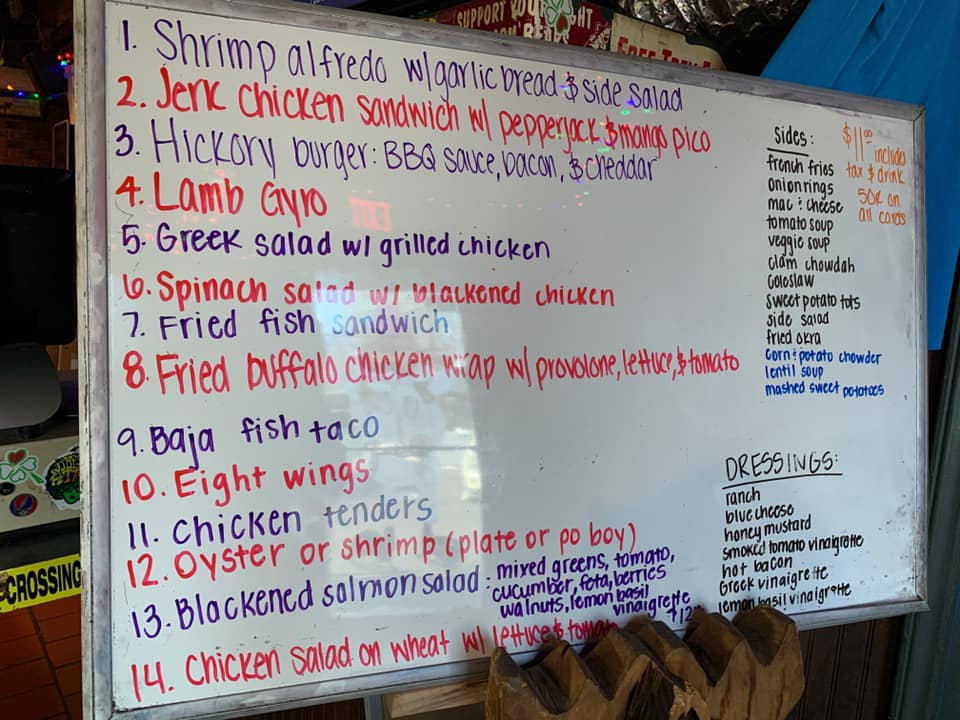 SUPPORT YOUR
FREE
1. Shrimp alfredo w/garlic bread & side salad
2. Jerk chicken sandwich w/ pepperjack & mango pico
3. Hickory burger: BBQ sauce, bacon, & cheddar
4. Lamb Gyro
5. Greek salad w/ grilled chicken
6. Spinach salad w/ blackened chicken
7. Fried fish sandwich
8. Fried buffalo chicken wrap w/ provolone, lettuce, & tomato
9. Baja fish taco
10. Eight wings
11. Chicken tenders
12. Oyster or shrimp (plate or po boy)
13. Blackened salmon salad: mixed greens, tomato,
cucumber, feta, berries
walnuts, lemon basil
vinaigrette
$12
14. Chicken salad on wheat w/ lettuce & tomato
Sides:
french fries
onion rings
mac & cheese
tomato soup
veggie soup
clam chowdah
coleslaw
sweet potato tots
side salad
fried okra
corn & potato chowder
lentil soup
mashed sweet potatoes
$11.00 includes
tax & drink
50¢ on
all cards
DRESSINGS:
ranch
blue cheese
honey mustard
smoked tomato vinaigrette
hot bacon
Greek vinaigrette
lemon basil vinaigrette
CROSSING